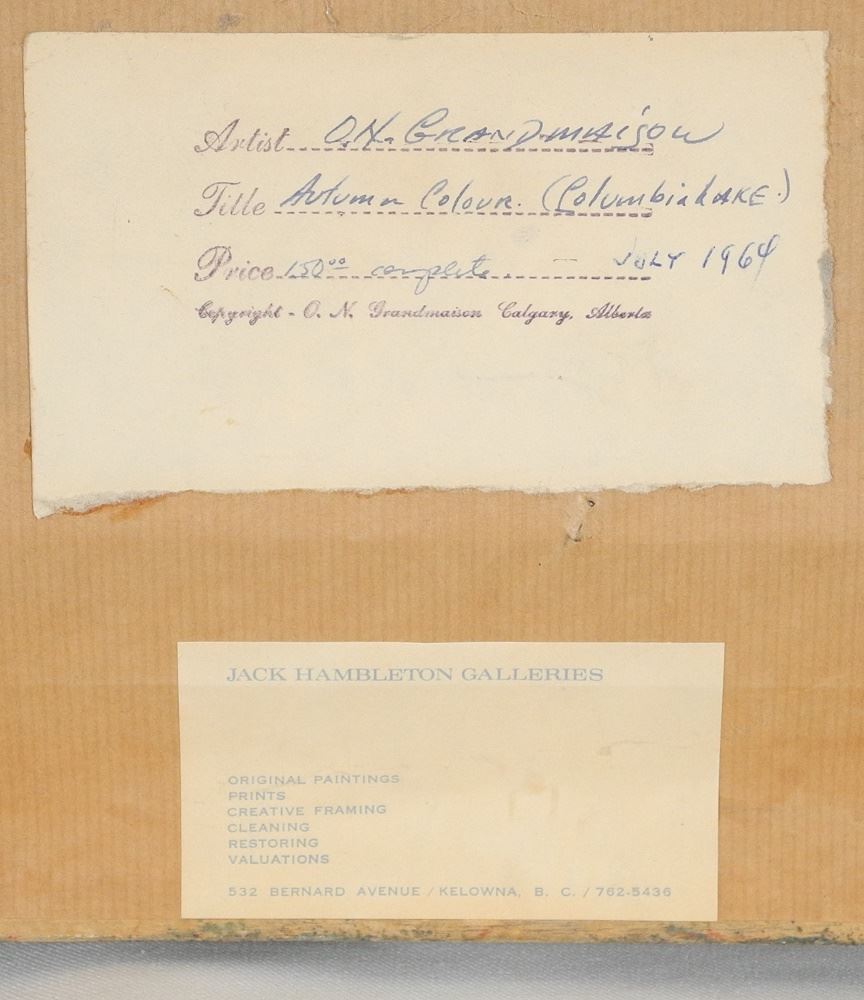 Artist O.N. GRANDMAISON
Title Autumn Colour. (Columbia LAKE.)
Price 150⁰⁰ complete - JULY 1964
Copyright - O. N. Grandmaison Calgary, Alberta
JACK HAMBLETON GALLERIES
ORIGINAL PAINTINGS
PRINTS
CREATIVE FRAMING
CLEANING
RESTORING
VALUATIONS
532 BERNARD AVENUE / KELOWNA, B. C. / 762-5436